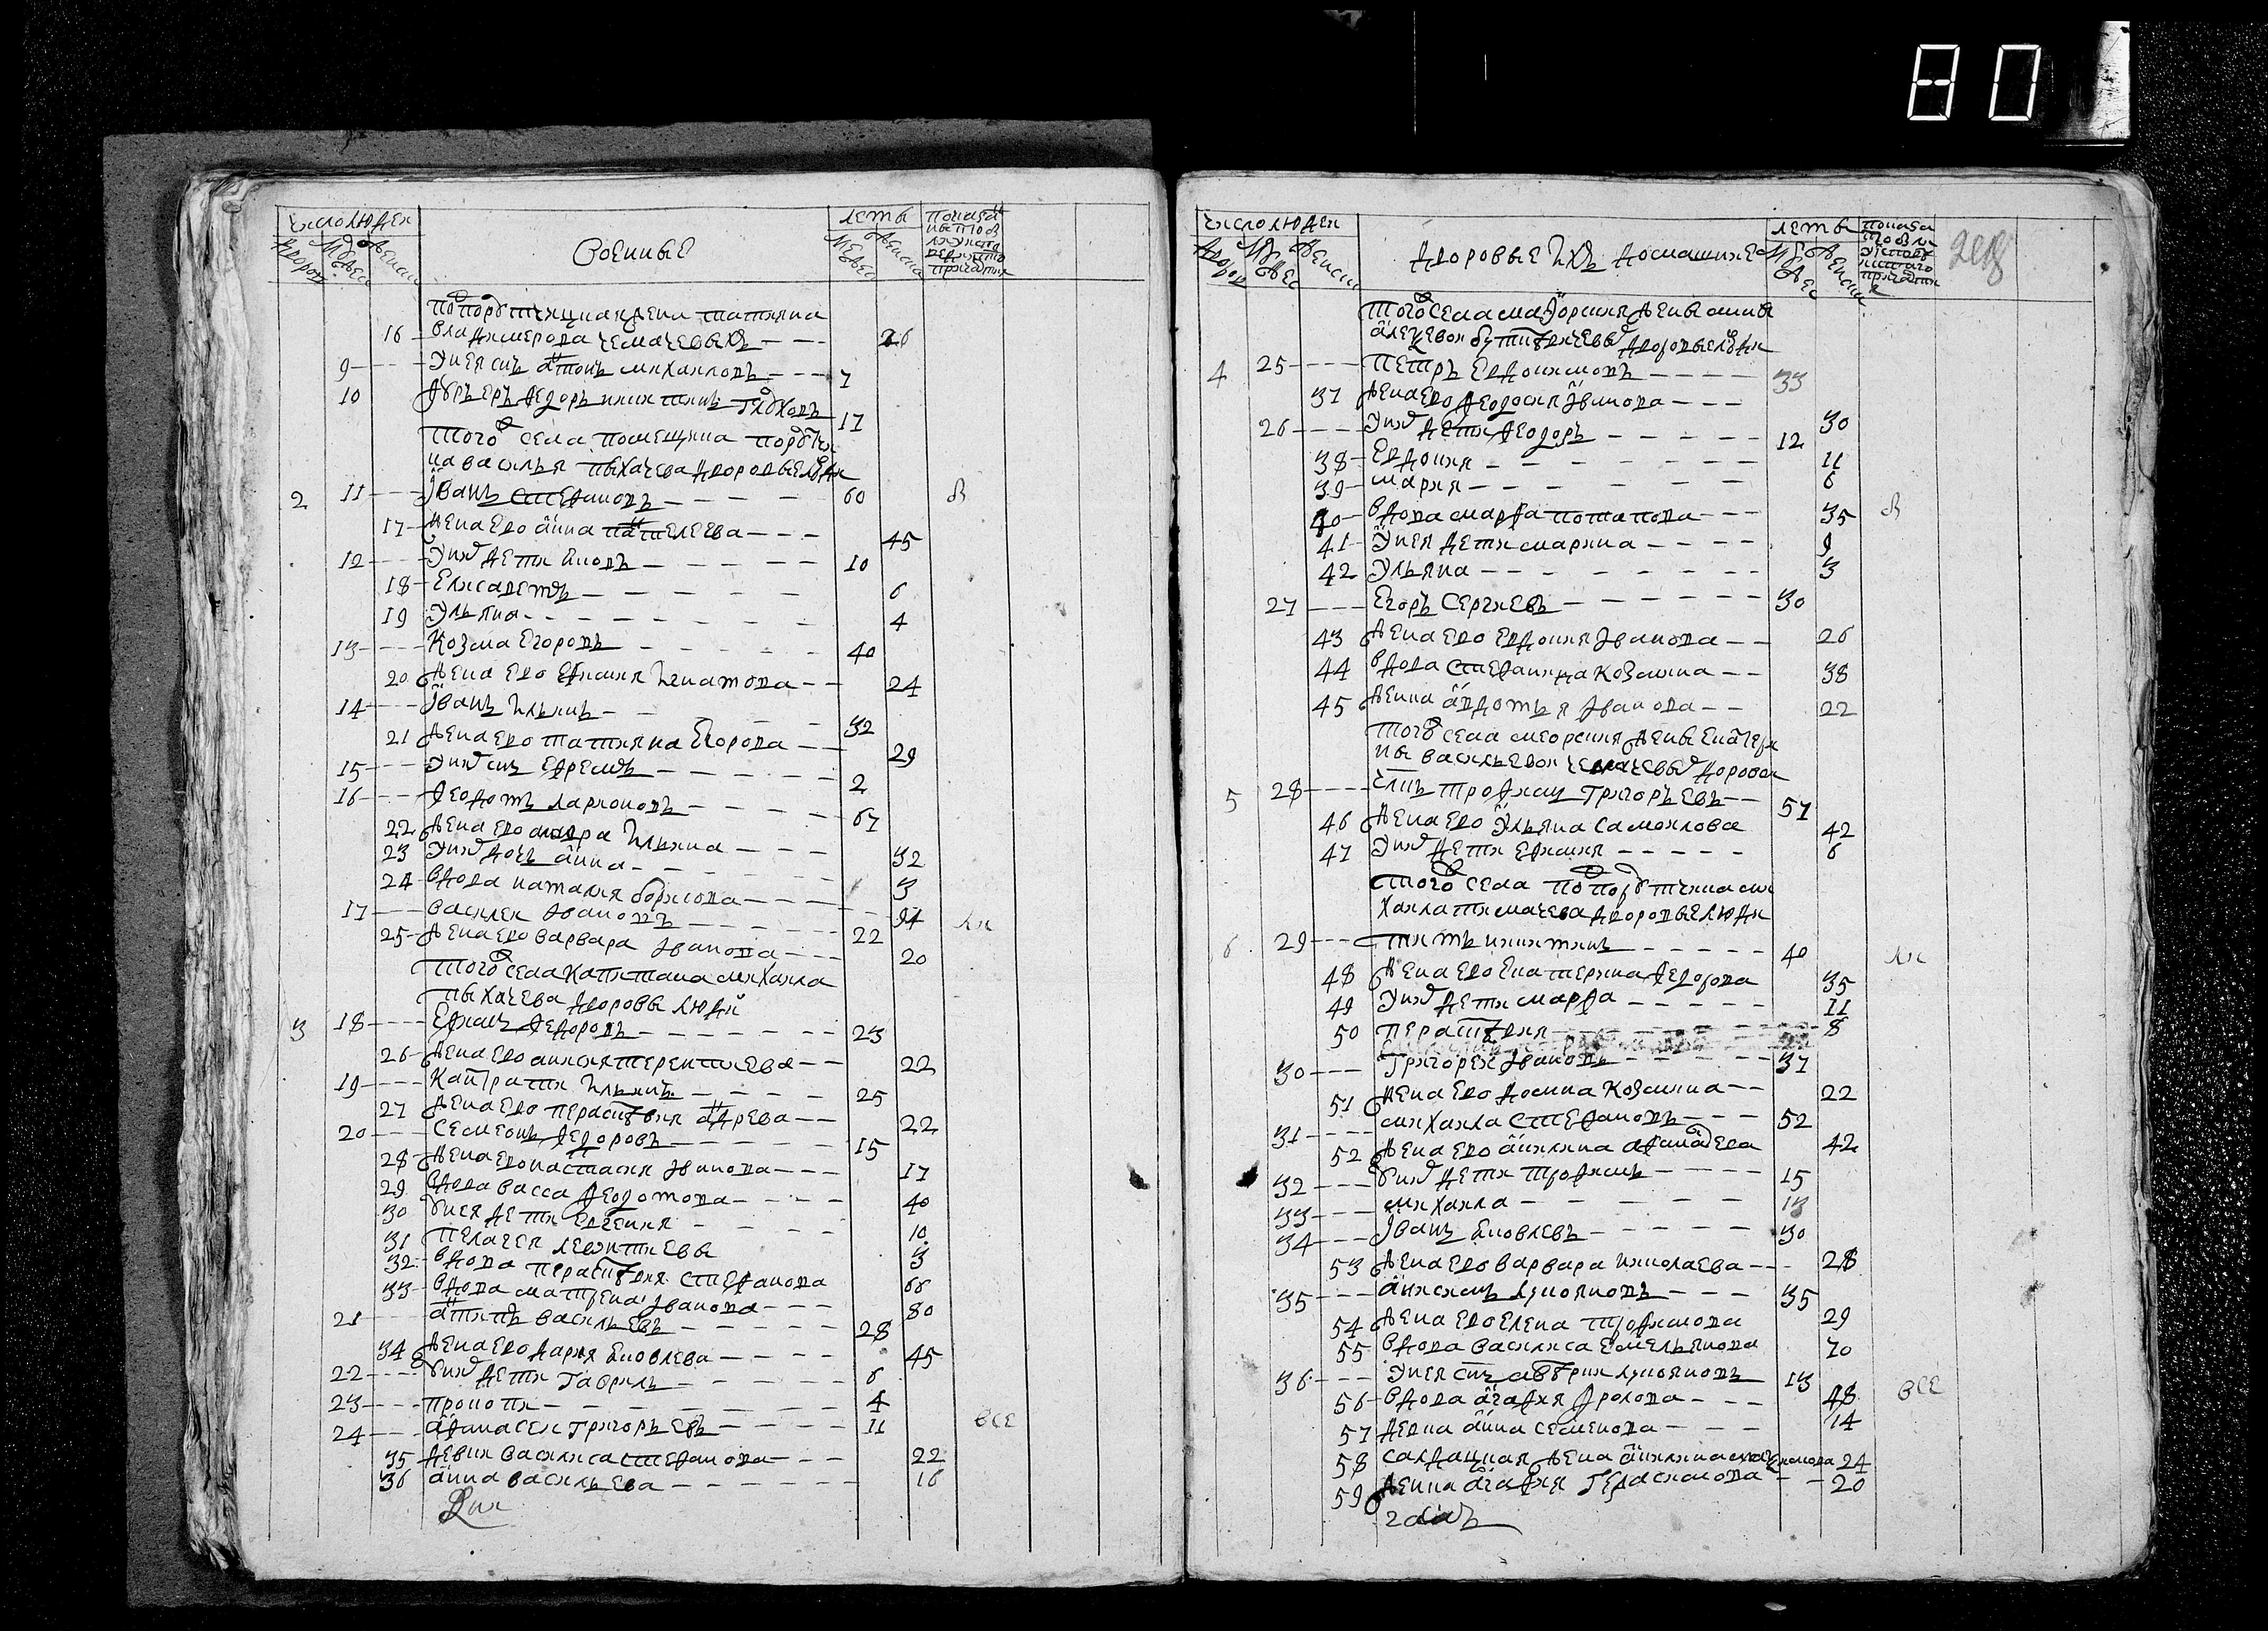 80
число людей
дворов
мужес
женски
военные
леты
мужес
женска
подпорутчица жена татияна
16 владимерова чемачевых 26
9 у нея сын антон михаилов 7
10 федор никитин 17
того села помещика порутчи
ка василья пыхачева дворовые люди
2 11 иван стефанов 60 в
17 жена его анна пантелеева 45
12 у них дети яков 10
18 елисаветъ 6
19 ульяна 4
13 козма егоров 40
20 жена его ефимия игнатова 24
14 иван ильин 32
21 жена его татияна егорова 29
15 у них сын ефрем 2
16 федот ларионов 67
22 жена его мавра ильина 32
23 у них дочь анна 3
24 вдова наталия борисова 94
17 василеи иванов 22 ли
25 жена его варвара иванова 20
того села капитана михаила
пыхачева дворовы люди
3 18 ефим федоров 23
26 жена его терентиева 22
19 кандратии ильин 25
27 жена его параскевия андрева 22
20 семеон федоров 15
28 жена его настасия иванова 17
29 вдова васса федотова 40
30 у нея дети евгения 10
31 пелагея леонтиевы 3
32 вдова параскевия стефанова 66
33 вдова матрена иванова 80
21 антип васильев 28
34 жена его дария яковлева 45
22 у них дети гаврил 6
23 прокопи 4
24 афанасеи григорьев 11 все
35 девки василиса стефанова 22
36 анна васильева 16
число людей
дворов
мужес
женски
дворовые их домашние
леты
мужес
женски
того села маиорския жены анны
алексевои дворовые люди
4 25 петръ евдокимов 33
37 жена его феодосия иванова 30
26 у них дети феодор 12
38 евдокия 11
39 мария 6
40 вдова марфа потапова 35 в
41 у нея дети марина 9
42 ульяна 3
27 егоръ сергиевъ 30
43 жена его евдокия иванова 26
44 вдова стефанида козмина 38
45 девка авдотья иванова 22
того села меорския жены екатери
ны васильевои чемачевых дворовои
5 28 члвк трофим григорьевъ 57
46 жена его ульяна самоилова 42
47 у них дети ефимия 6
того села подпорутчика ми
хаила тимачева дворовые люди
6 29 тит никитин 40 ли
48 жена его екатерина федорова 35
49 у них дети марфа 11
50 параскевия 8
30 григореи иванов 37
51 жена его домна козмина 22
31 михаила стефанов 52
52 жена его акилина 42
32 у них дети трофим 15
33 михаила 13
34 иван яковлевъ 30
53 жена его варвара николаева 28
35 аникеим лукоянов 35
54 жена его елена трофимова 29
55 вдова василиса емельянова 70
36 у нея сын лукоянов 13
56 вдова агафия фролова 48 все
57 девка анна семенова 14
58 салдацкая жена акилина 24
59 девка агафия герасимова 20